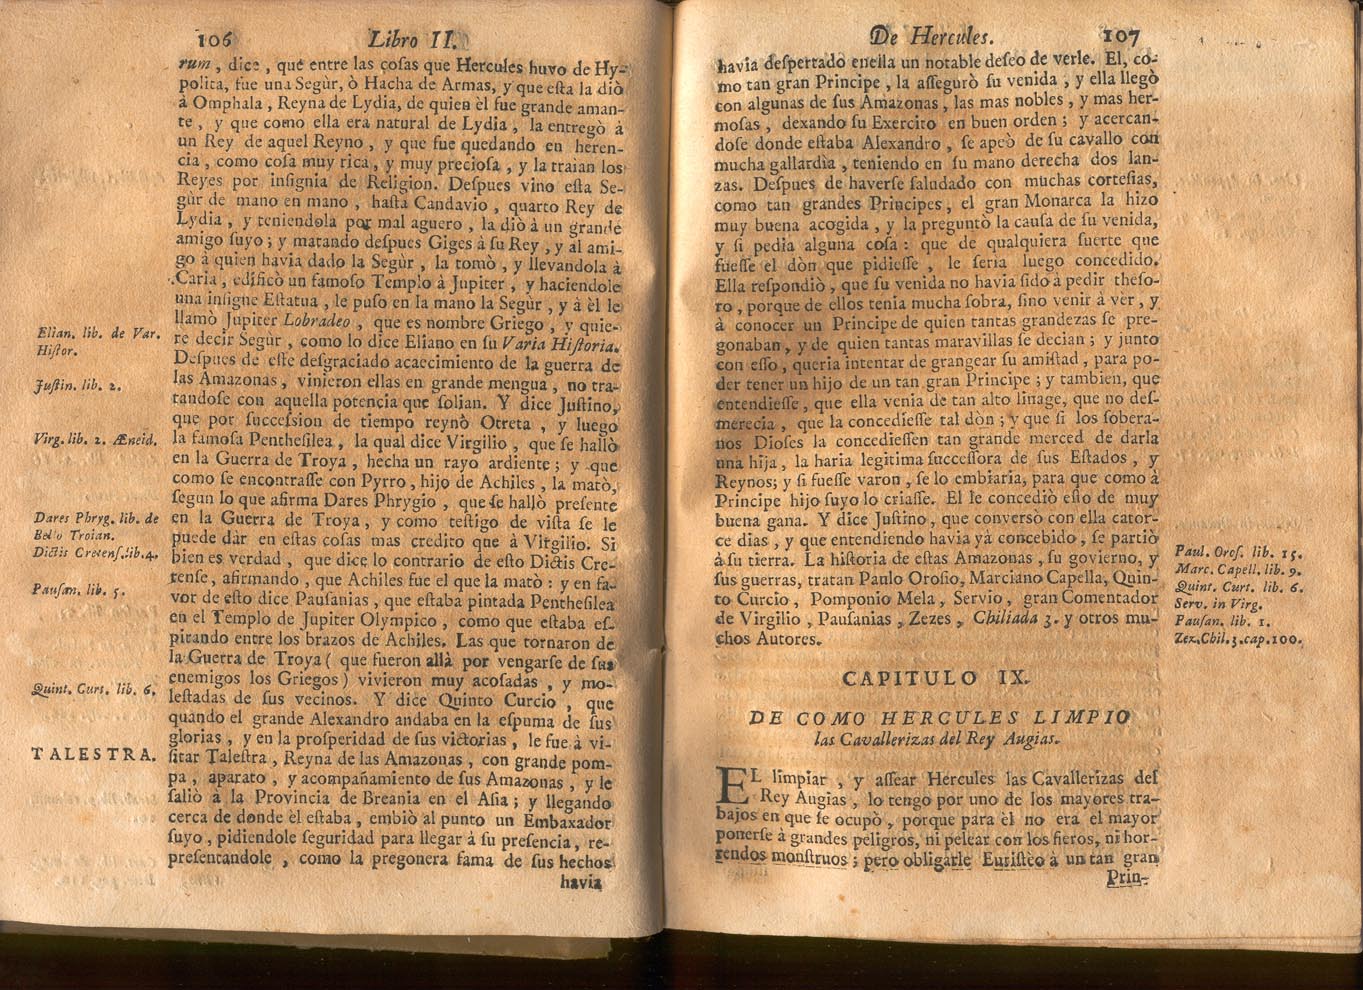 106 Libro II.
rum, dice, que entre las coſas que Hercules huvo de Hy-
polita, fue una Segùr, ò Hacha de Armas, y que eſta la diò
à Omphala, Reyna de Lydia, de quien èl fue grande aman-
te, y que como ella era natural de Lydia, la entregò à
un Rey de aquel Reyno, y que fue quedando en heren-
cia, como coſa muy rica, y muy precioſa, y la traian los
Reyes por inſignia de Religion. Deſpues vino eſta Se-
gùr de mano en mano, haſta Candavio, quarto Rey de
Lydia, y teniendola por mal aguero, la diò à un grande
amigo ſuyo; y matando deſpues Giges à ſu Rey, y al ami-
go à quien havia dado la Segùr, la tomò, y llevandola à
Caria, edificò un famoſo Templo à Jupiter, y haciendole
una inſigne Eſtatua, le puſo en la mano la Segùr, y à èl le
llamò Jupiter Lobradeo, que es nombre Griego, y quie-
re decir Segùr, como lo dice Eliano en ſu Varia Hiſtoria.
Deſpues de eſte deſgraciado acaecimiento de la guerra de
las Amazonas, vinieron ellas en grande mengua, no tra-
tandoſe con aquella potencia que ſolian. Y dice Juſtino,
que por ſucceſsion de tiempo reynò Otreta, y luego
la famoſa Pentheſilea, la qual dice Virgilio, que ſe hallò
en la Guerra de Troya, hecha un rayo ardiente; y que
como ſe encontraſſe con Pyrro, hijo de Achiles, la matò,
ſegun lo que afirma Dares Phrygio, que ſe hallò preſente
en la Guerra de Troya, y como teſtigo de viſta ſe le
puede dar en eſtas coſas mas credito que à Virgilio. Si
bien es verdad, que dice lo contrario de eſto Dictis Cre-
tenſe, afirmando, que Achiles fue el que la matò: y en fa-
vor de eſto dice Pauſanias, que eſtaba pintada Pentheſilea
en el Templo de Jupiter Olympico, como que eſtaba eſ-
pirando entre los brazos de Achiles. Las que tornaron de
la Guerra de Troya (que fueron allà por vengarſe de ſus
enemigos los Griegos) vivieron muy acoſadas, y mo-
leſtadas de ſus vecinos. Y dice Quinto Curcio, que
quando el grande Alexandro andaba en la eſpuma de ſus
glorias, y en la proſperidad de ſus victorias, le fue à vi-
ſitar Taleſtra, Reyna de las Amazonas, con grande pom-
pa, aparato, y acompañamiento de ſus Amazonas, y le
ſaliò à la Provincia de Breania en el Aſia; y llegando
cerca de donde èl eſtaba, embiò al punto un Embaxador
ſuyo, pidiendole ſeguridad para llegar à ſu preſencia, re-
preſentandole, como la pregonera fama de ſus hechos
havia
Elian. lib. de Var.
Hiſtor.
Juſtin. lib. 2.
Virg. lib. 2. Æneid.
Dares Phryg. lib. de
Bello Troian.
Dictis Cretenſ. lib. 4.
Pauſan. lib. 5.
Quint. Curt. lib. 6.
TALESTRA.
De Hercules. 107
havia deſpertado en ella un notable deſeo de verle. El, co-
mo tan gran Principe, la aſſegurò ſu venida, y ella llegò
con algunas de ſus Amazonas, las mas nobles, y mas her-
moſas, dexando ſu Exercito en buen orden; y acercan-
doſe donde eſtaba Alexandro, ſe apeò de ſu cavallo con
mucha gallardia, teniendo en ſu mano derecha dos lan-
zas. Deſpues de haverſe ſaludado con muchas corteſias,
como tan grandes Principes, el gran Monarca la hizo
muy buena acogida, y la preguntò la cauſa de ſu venida,
y ſi pedia alguna coſa: que de qualquiera ſuerte que
fueſſe el dòn que pidieſſe, le ſeria luego concedido.
Ella reſpondiò, que ſu venida no havia ſido à pedir theſo-
ro, porque de ellos tenia mucha ſobra, ſino venir à vèr, y
à conocer un Principe de quien tantas grandezas ſe pre-
gonaban, y de quien tantas maravillas ſe decian; y junto
con eſſo, queria intentar de grangear ſu amiſtad, para po-
der tener un hijo de un tan gran Principe; y tambien, que
entendieſſe, que ella venia de tan alto linage, que no deſ-
merecia, que la concedieſſe tal dòn; y que ſi los ſobera-
nos Dioſes la concedieſſen tan grande merced de darla
una hija, la haria legitima ſucceſſora de ſus Eſtados, y
Reynos; y ſi fueſſe varon, ſe lo embiaria, para que como à
Principe hijo ſuyo lo criaſſe. El le concediò eſto de muy
buena gana. Y dice Juſtino, que conversò con ella cator-
ce dias, y que entendiendo havia yà concebido, ſe partiò
à ſu tierra. La hiſtoria de eſtas Amazonas, ſu govierno, y
ſus guerras, tratan Paulo Oroſio, Marciano Capella, Quin-
to Curcio, Pomponio Mela, Servio, gran Comentador
de Virgilio, Pauſanias, Zezes, Chiliada 3. y otros mu-
chos Autores.
CAPITULO IX.
DE COMO HERCULES LIMPIO
las Cavallerizas del Rey Augias.
EL limpiar, y aſſear Hercules las Cavallerizas del
Rey Augias, lo tengo por uno de los mayores tra-
bajos en que ſe ocupò, porque para èl no era el mayor
ponerſe à grandes peligros, ni pelear con los fieros, ni hor-
rendos monſtruos; pero obligarle Euriſteo à un tan gran
Prin-
Paul. Oroſ. lib. 15.
Marc. Capell. lib. 9.
Quint. Curt. lib. 6.
Serv. in Virg.
Pauſan. lib. 1.
Zez. Chil. 3. cap. 100.